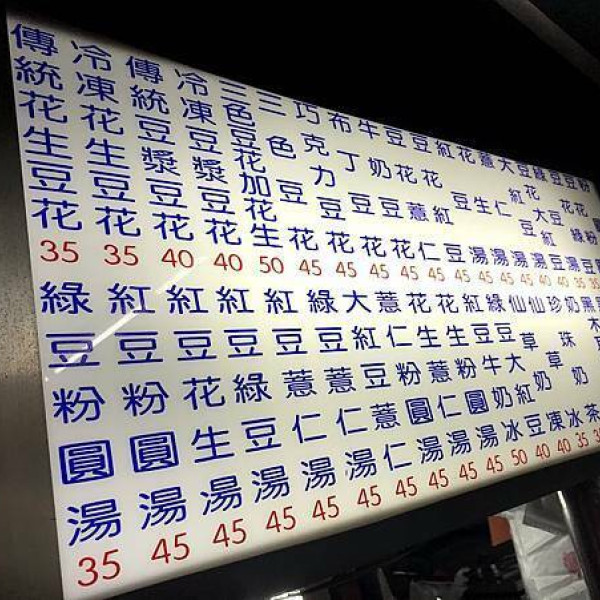 傳統花生豆花 35
冷凍花生豆花 35
傳統豆漿豆花 40
冷凍豆漿豆花 40
三色豆花加花生 50
三色豆花 45
巧克力豆花 45
布丁豆花 45
牛奶豆花 45
豆花薏仁 45
豆花紅豆 45
紅豆湯 45
花生湯 45
薏仁湯 45
大紅豆湯
豆花大紅豆
綠豆湯
豆花綠豆
綠豆粉圓湯 35
紅豆粉圓湯 45
紅豆花生湯 45
紅豆綠豆湯 45
紅豆薏仁湯 45
綠豆薏仁湯 45
大紅豆薏仁 45
薏仁粉圓湯 45
花生薏仁湯 45
花生粉圓湯 45
紅豆牛奶冰 50
綠豆大紅豆 40
仙草奶凍 40
仙草冰 35
珍珠奶茶